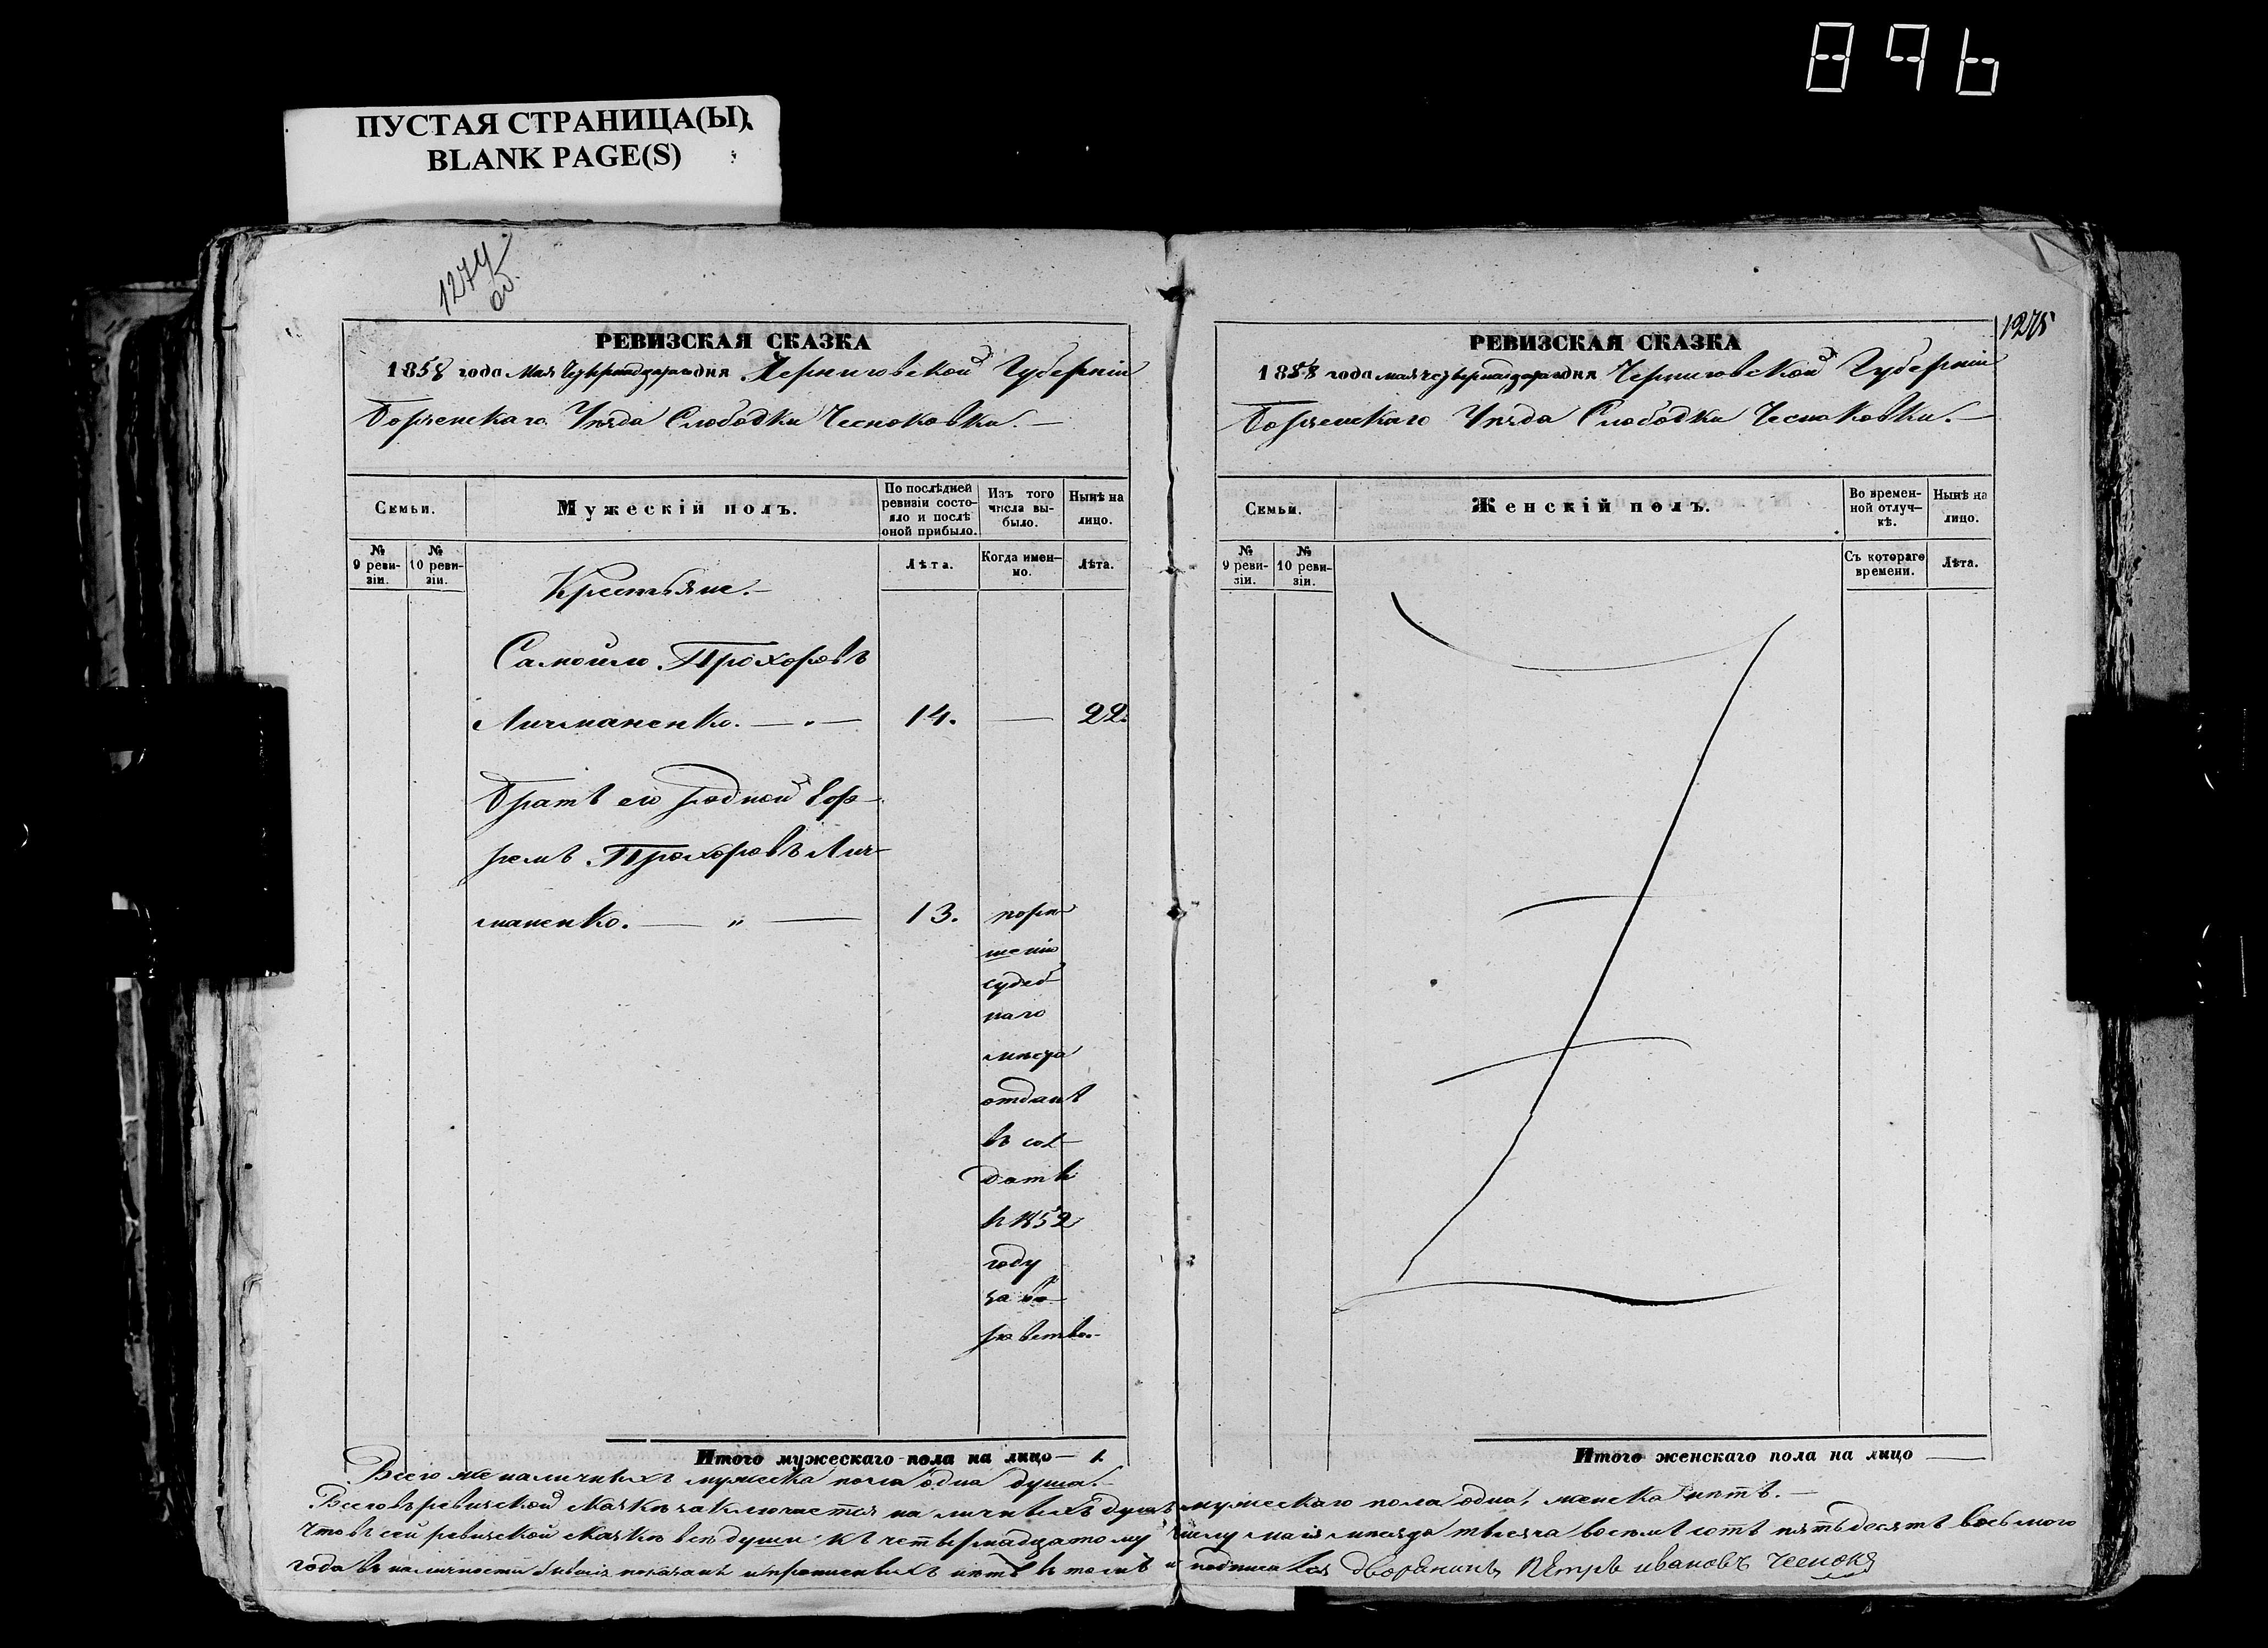 896
ПУСТАЯ СТРАНИЦА(Ы)
BLANK PAGE(S)
1274
об.
РЕВИЗСКАЯ СКАЗКА
1858 года мая четырнадцатаго дня Черниговской Губерніи
Борзенскаго Уѣзда Слободки Чесноковки.
Семьи.
Мужескій полъ.
По послѣдней ревизіи состояло и послѣ оной прибыло.
Изъ того числа выбыло.
Нынѣ на лицо.
№ 9 ревизіи.
№ 10 ревизіи.
Лѣта.
Когда именно.
Лѣта.
Крестьяне.
Самойло Прохоровъ
Личманенко. — „ — 14. — 22.
Братъ его родной Еф-
ремъ Прохоровъ Лич-
маненко. — „ — 13. по рѣ
шенію
судеб
наго
мѣста
отданъ
въ сол
даты
в 1852
году
за во
ровство.
Итого мужескаго пола на лицо — 1.
1275
РЕВИЗСКАЯ СКАЗКА
1858 года мая четырнадцатаго дня Черниговской Губерніи
Борзенскаго Уѣзда Слободки Чесноковки.
Семьи.
Женскій полъ.
Во временной отлучкѣ.
Нынѣ на лицо.
№ 9 ревизіи.
№ 10 ревизіи.
Съ котораго времени.
Лѣта.
Итого женскаго пола на лицо —
Всего же наличныхъ мужеска пола одна душа.
Всего въ ревизской сказкѣ заключается наличныхъ душъ мужескаго пола одна, женска нѣтъ. —
Что въ сей ревизской сказкѣ всѣ души къ четырнадцатому числу мая мѣсяца тысяча восемьсотъ пятьдесятъ восьмого
года въ наличности бывшія показаны и прописныхъ нѣтъ в томъ и подписался дворянинъ Петръ Ивановъ